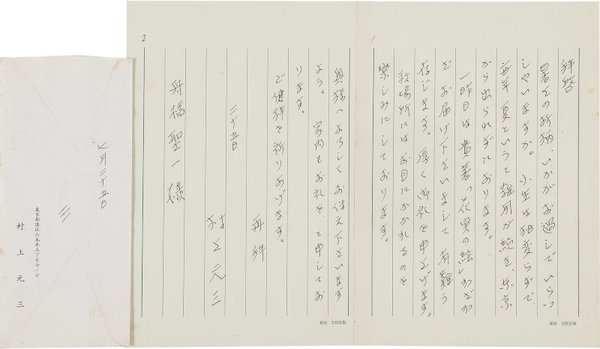 1
拝啓
暑さの折柄、いかがお過しでいらっ
しゃいますか。小生は相変らずで
毎年、夏というと雑用が続き、東京
から出られずにおります。
一昨日は貴著「花実の繪」わざわざ
とお届け下さいまして有難う
存じます。厚く御礼を申上げます。
秋場所にはお目にかかれるのを
楽しみにしております。
2
奥様へよろしくお伝え下さいます
よう。家内もお礼を、と申してお
ります。
ご健祥を祈りあげます。
再拝
二十五日
村上元三
舟橋聖一様
七月二十五日
村上元三